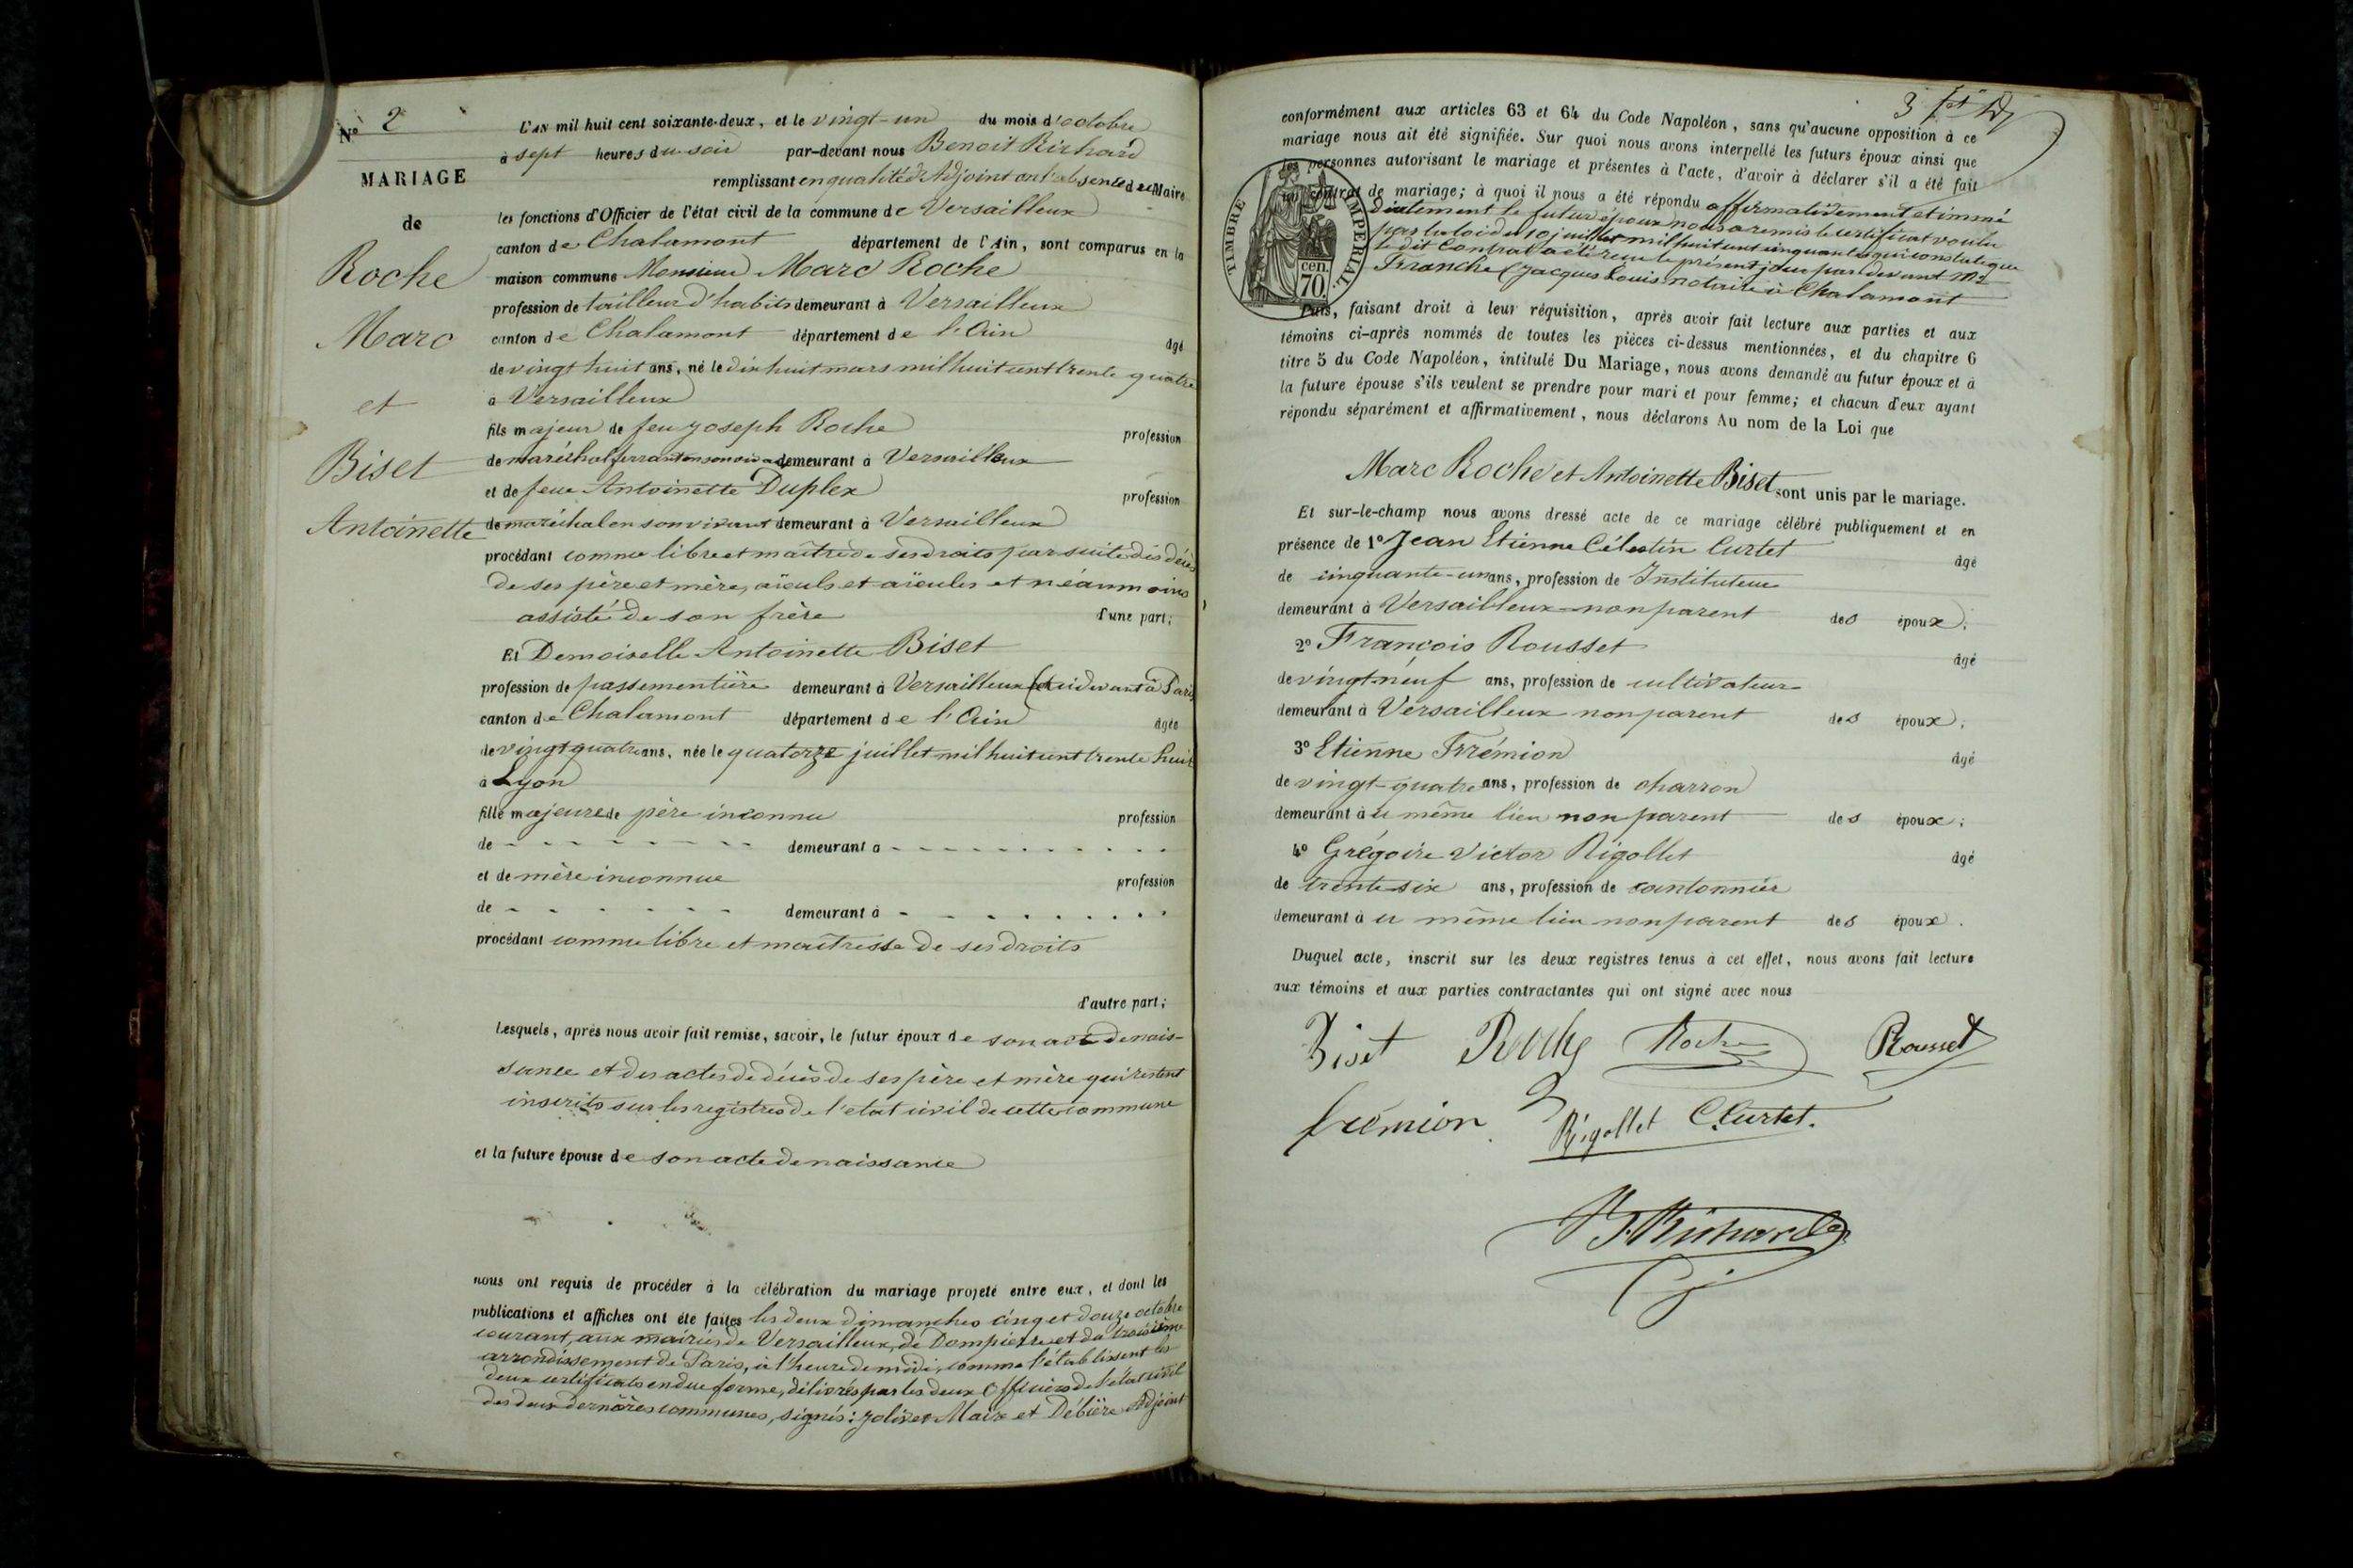 N° 2
MARIAGE
de
Roche
Marc
et
Biset
Antoinette
L'AN mil huit cent soixante-deux, et le vingt-un du mois d'octobre
à sept heures du soir par-devant nous Benoit Richard
remplissant en qualité d'Adjoint en l'absence de Maire
les fonctions d'Officier de l'état civil de la commune de Versailleux
canton de Chalamont département de l'Ain, sont comparus en la
maison commune Monsieur Marc Roche
profession de tailleur d'habits demeurant à Versailleux
canton de Chalamont département de l'Ain âgé
de vingt huit ans, né le dix huit mars mil huit cent trente quatre
à Versailleux
fils majeur de feu Joseph Roche profession
de maréchal ferrant en son vivant demeurant à Versailleux
et de feue Antoinette Duplex profession
de maréchal en son vivant demeurant à Versailleux
procédant comme libre et maître de ses droits par suite des décès
de ses père et mère, aïeuls et aïeules et néanmoins
assisté de son frère d'une part;
Et Demoiselle Antoinette Biset
profession de passementière demeurant à Versailleux et ci devant à Paris
canton de Chalamont département de l'Ain âgée
de vingt quatre ans, née le quatorze juillet mil huit cent trente huit
à Lyon
fille majeure de père inconnu profession
de - - - - - - - - demeurant à - - - - - - - - - -
et de mère inconnue profession
de - - - - - - demeurant à - - - - - - - - - -
procédant comme libre et maîtresse de ses droits
d'autre part;
Lesquels, après nous avoir fait remise, savoir, le futur époux de son acte de nais-
sance et des actes de décès de ses père et mère qui restent
inscrits sur les registres de l'etat civil de cette commune
et la future épouse de son acte de naissance
nous ont requis de procéder à la célébration du mariage projeté entre eux, et dont les
publications et affiches ont été faites les deux dimanches cinq et douze octobre
courant, aux mairies de Versailleux, de Dompierre et du troisième
arrondissement de Paris, à l'heure de midi, comme l'établissent les
deux certificats en due forme, délivrés par les deux Officiers de l'état civil
des deux dernières communes, signés: Jolivet Maire et Débière Adjoint
conformément aux articles 63 et 64 du Code Napoléon, sans qu'aucune opposition à ce
mariage nous ait été signifiée. Sur quoi nous avons interpellé les futurs époux ainsi que
les personnes autorisant le mariage et présentes à l'acte, d'avoir à déclarer s'il a été fait
un contrat de mariage; à quoi il nous a été répondu affirmativement et immé
diatement le futur époux nous a remis le certificat voulu
par la loi du 10 juillet mil huit cent cinquante qui constate que
le dit Contrat a été reçu le présent jour par devant Me
Franche Jacques Louis notaire à Chalamont
TIMBRE IMPERIAL
70 cen.
Puis, faisant droit à leur réquisition, après avoir fait lecture aux parties et aux
témoins ci-après nommés de toutes les pièces ci-dessus mentionnées, et du chapitre 6
titre 5 du Code Napoléon, intitulé Du Mariage, nous avons demandé au futur époux et à
la future épouse s'ils veulent se prendre pour mari et pour femme; et chacun d'eux ayant
répondu séparément et affirmativement, nous déclarons Au nom de la Loi que
Marc Roche et Antoinette Biset sont unis par le mariage.
Et sur-le-champ nous avons dressé acte de ce mariage célébré publiquement et en
présence de 1° Jean Etienne Célestin Curtet âgé
de cinquante-un ans, profession de Instituteur
demeurant à Versailleux non parent des époux;
2° François Rousset âgé
de vingt-neuf ans, profession de cultivateur
demeurant à Versailleux non parent des époux;
3° Etienne Frémion âgé
de vingt-quatre ans, profession de charron
demeurant à ce même lieu non parent des époux;
4° Grégoire Victor Rigollet âgé
de trente six ans, profession de cantonnier
demeurant à ce même lieu non parent des époux.
Duquel acte, inscrit sur les deux registres tenus à cet effet, nous avons fait lecture
aux témoins et aux parties contractantes qui ont signé avec nous
Biset Roche Roche Rousset
frémion Rigollet C. Curtet.
B. Richard